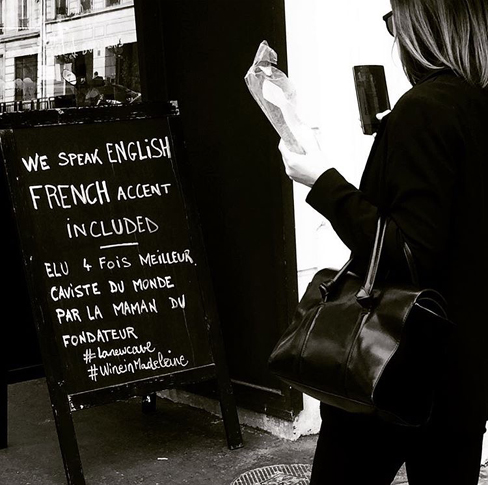 WE SPEAK ENGLiSH
FRENCH ACCENT
iNCLUDED
ELU 4 FOiS MEiLLEUR
CAViSTE DU MONDE
PAR LA MAMAN DU
FONDATEUR
#Lanewcave
#WineinMadeleine